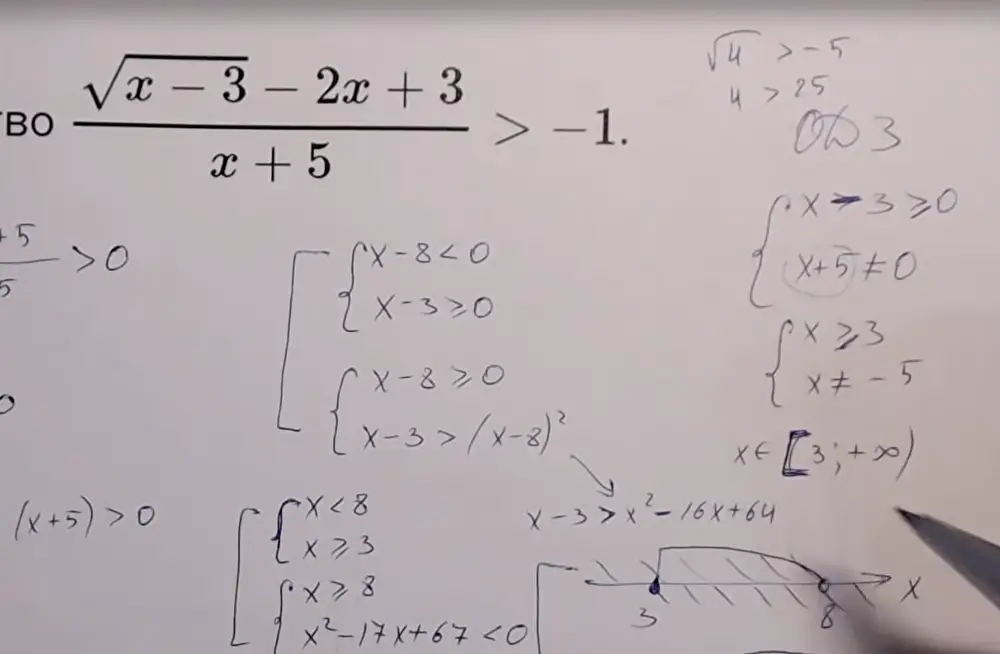 ВО (√(x − 3) − 2x + 3)/(x + 5) > −1.
√4 > −5
4 > 25
ОДЗ
{ x − 3 ⩾ 0
x+5 ≠ 0
{ x ⩾ 3
x ≠ −5
x ∈ [3; +∞)
+5
5
> 0
0
(x+5) > 0
[ { x − 8 < 0
x − 3 ⩾ 0
{ x − 8 ⩾ 0
x − 3 > (x−8)²
x − 3 > x² − 16x + 64
[ { x < 8
x ⩾ 3
{ x ⩾ 8
x² − 17x + 67 < 0
3 8 x